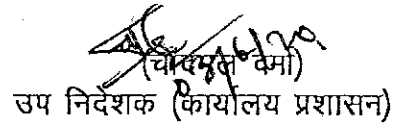 (चाँदमल वर्मा)
उप निदेशक (कार्यालय प्रशासन)